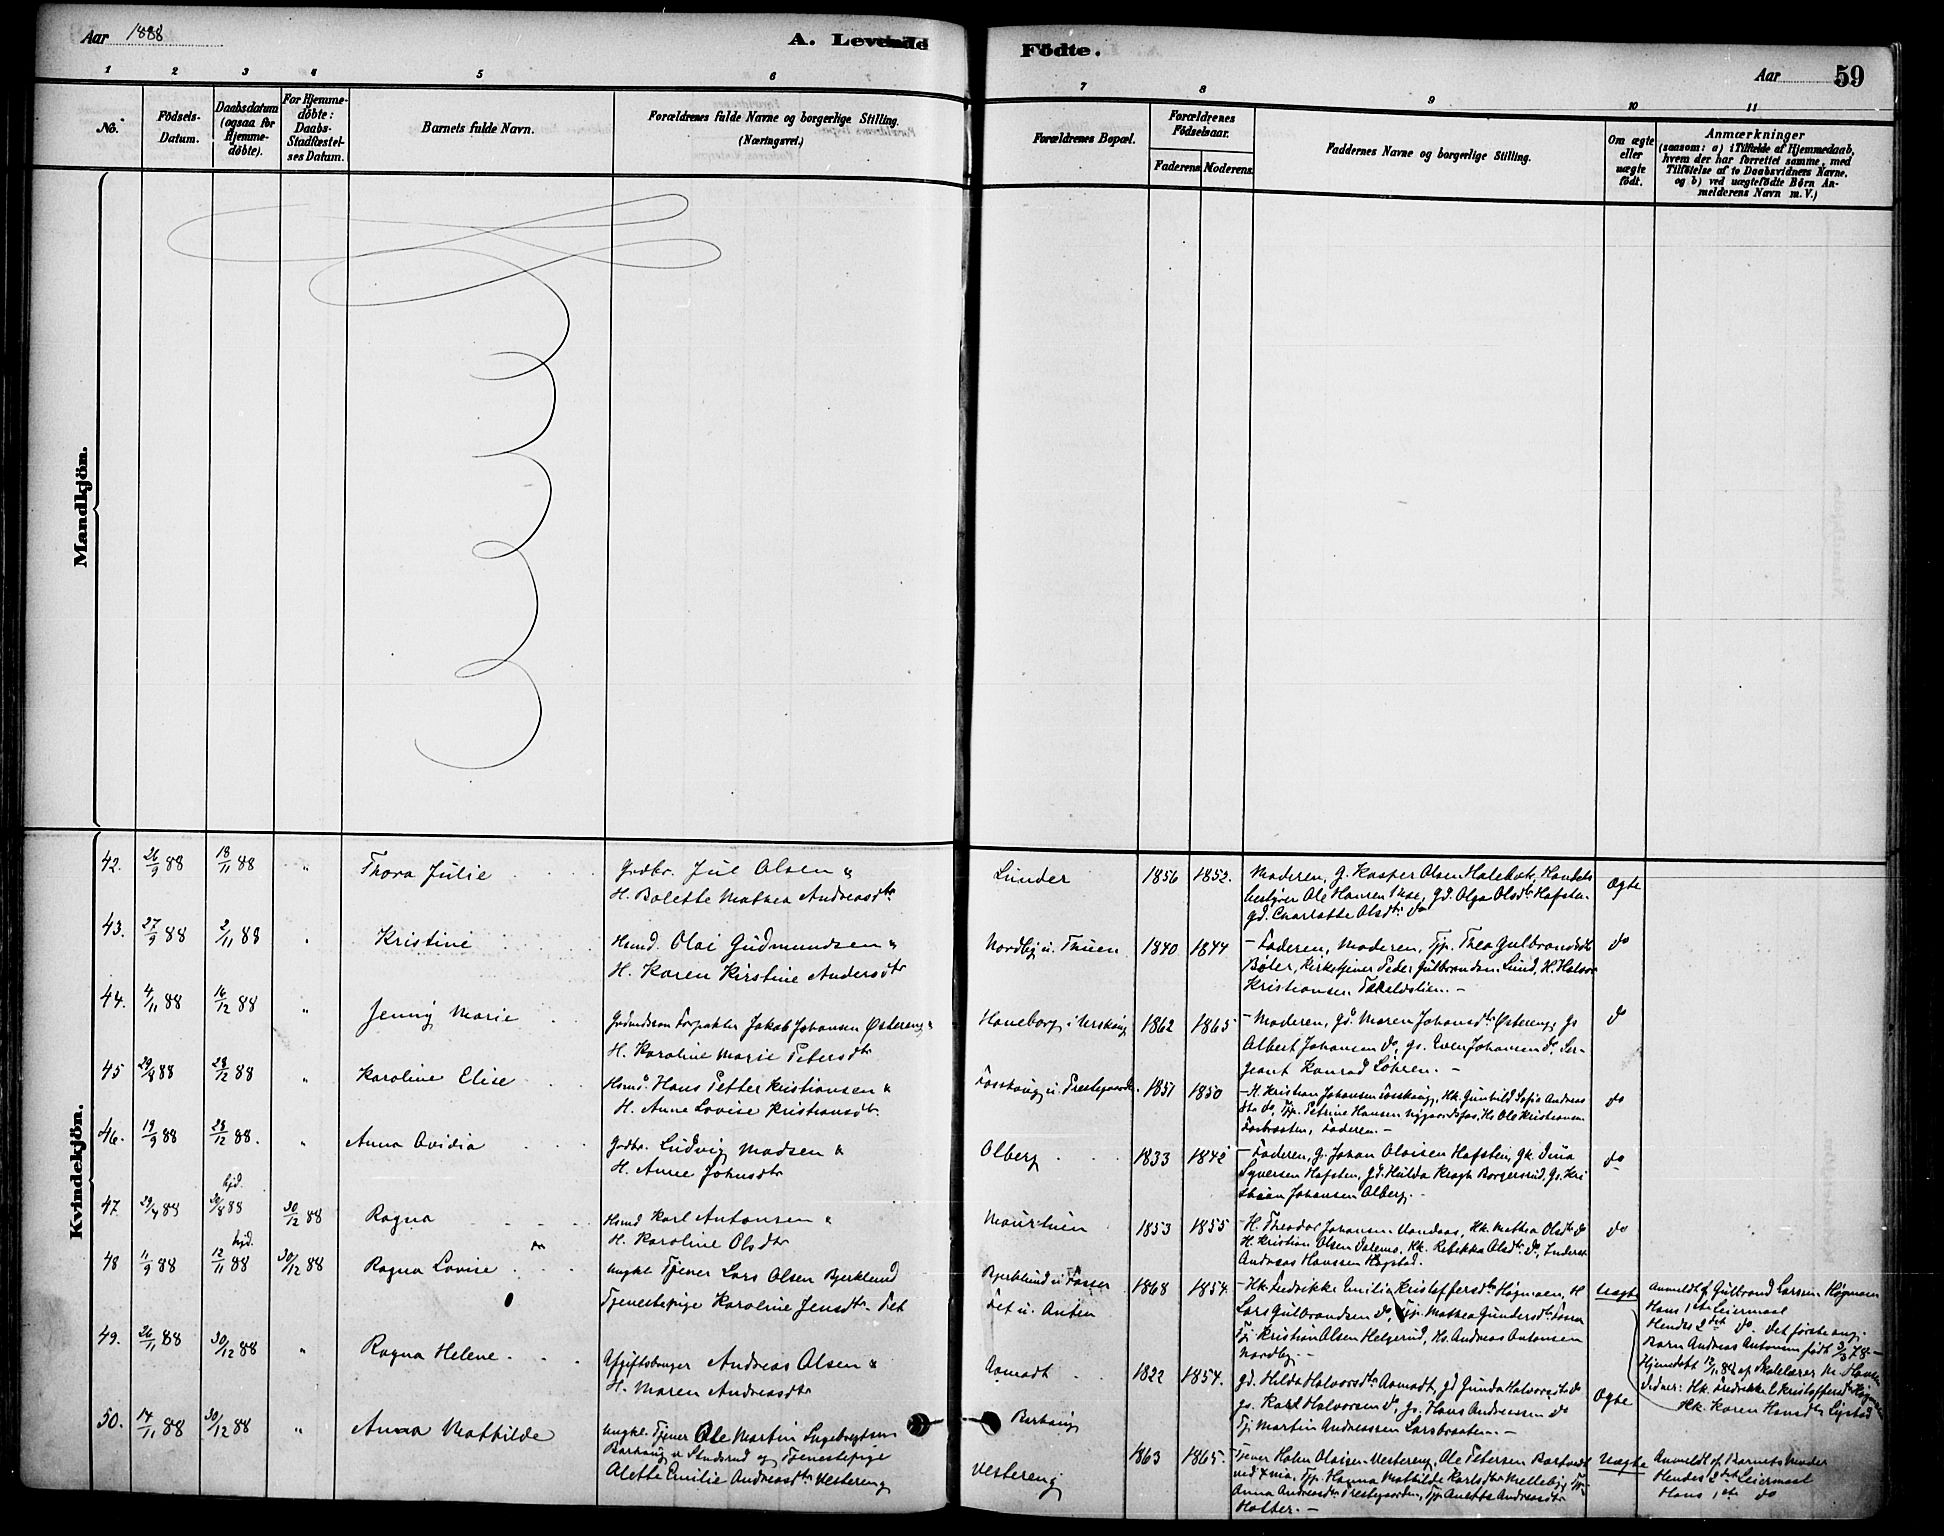 Aar 1888
A. Levende
Födte.
Aar
59
1 2 3 4 5 6 7 8 9 10 11
No.
Födsels-Datum.
Daabsdatum (ogsaa for Hjemme-döbte).
For Hjemme-döbte: Daabs-Stadfæstel-ses Datum.
Barnets fulde Navn.
Forældrenes fulde Navne og borgerlige Stilling.
(Næringsvei.)
Forældrenes Bopæl.
Forældrenes Födselsaar.
Faderens Moderens
Faddernes Navne og borgerlige Stilling.
Om ægte eller uægte födt.
Anmærkninger
(saasom: a) i Tilfælde af Hjemmedaab,
hvem der har forrettet samme, med
Tilföielse af to Daabsvidners Navne,
og b) ved uægtefödte Börn An-
melderens Navn m. V.)
Mandkjön.
Kvindekjön.
42. 26/9 88 18/11 88 " Thora Julie
Grdbr. Jul Olsen "
H. Bolette Mathea Andreasdtr
Lunder 1856 1852.
Moderen, G. Kasper Olsen Handels
bestyrer Ole Hansen Gd. Olga Olsdtr Hafsten
gd. Charlotte Olsdtr do
Ægte
43. 27/9 88 2/11 88 " Kristine
Hsmd. Olai Gudmundsen "
H. Karen Kirstine Andersdtr
Nordby u. Thuen 1840 1844
- Faderen, Moderen, Tjp. Thea Gulbrandsdtr
Böler, Kirketjener Peder Gulbrandsen Lund, H. Halvor
Kristiansen -
do
44. 4/11 88 16/12 88 " Jenny Marie
Grdmdssön Forpakter Jakob Johansen Østereng "
H. Karoline Marie Petersdtr
Haneborg i Urskoug 1862 1865
- Moderen, Gd. Maren Johansdtr Østereng, gs
Albert Johansen do, gs. Even Johansen do, Ser-
jeant Konrad Lohren. -
do
45 29/8 88 23/12 88 " Karoline Elise
Hsmd. Hans Petter Kristiansen "
H. Anne Lovise Kristiansdtr.
Fosshaug u. Prestegaarden. 1851 1850
- H. Kristian Johansen Fosshaug, Hk. Gunhild Sofie Andreas
dtr do, Tjp. Petrine Hansen Hs Ole Kristiansen
Faderen. -
do
46. 19/9 88 23/12 88. " Anna Ovidia
Grdbr. Ludvig Madsen "
H. Anne Johnsdtr
Olberg 1833 1842
- Faderen, G. Johan Olaisen Hafsten, Gk. Dina
Syversen Hafsten, Gd. Hulda Kragh Borgersrud, Gs. Kri
stian Johansen Olberg. -
do
47. 29/4 88 hjd. 88 30/12 88 Ragna
Hsmd Karl Antonsen "
H. Karoline Olsdtr
Maurtuen 1853 1855
- H. Theodor Johansen Hk. Mathea Olsdtr do
H. Kristian Olsen Hk. Rebekka Olsdtr do, Inderst
Andreas Hanssen Högstad.
do
48 11/9 88 hjd. 12/11 88 30/12 88 Ragna Lovise
Ungkl Tjener Lars Olsen Bjerklund
Tjenestepige Karoline Jensdtr. Fet
Bjerklund u. Fosser
Fet u. Anten
1868 1854.
- Hk. Fredrikke Emilie Kristoffersdtr Högmoen, H
Lars Gulbrandsen do, Tjp. Mathea Gundersdtr
Tj Kristian Olsen Helgerud, Hs. Andreas Antonsen
Nordby. -
Uægte
Anmeldt af Gulbrand Larsen Högmoen
Hans 1ste Leiermaal
Hendes 2det do. Det förste ang.
Barn Andreas Antonsen född 78 -
Hjemdöbt 12/11 88 af Skolelærer M. Hansen
Vidner: Hk. Fredrikke E Kristoffersdtr Högmoen
Hk. Karen Hansdtr
49. 26/11 88 30/12 88 " Ragna Helene
Afgiftsbruger Andreas Olsen "
H. Maren Andreasdtr
Aamodt 1822 1854.
gd. Hilda Halvorsdtr Aamodt, gd Gunda Halvorsdtr do
gs. Karl Halvorsen do, gs. Hans Andreassen do
Tj Martin Andreassen Larsbraaten. -
Ægte
50. 14/11 88 30/12 88 " Anna Mathilde
Ungkl. Tjener Ole Martin Ingebregtsen
Barhaug u Standsrud og Tjenestepige
Alette Emilie Andreasdtr Vestereng
Barhaug
Vestereng
1863 1865.
Tjener Halen Olaisen Vestereng, Ole Petersen
ved Xnia, Tjp. Hanna Mathilde Karlsdtr Melleby, Tjp
Anna Andreasdtr Prestegaarden, Tjp Anette Andreasdtr
Holter. -
Uægte
Anmeldt af Barnets Moder
Hendes 2det Leiermaal
Hans 1ste do